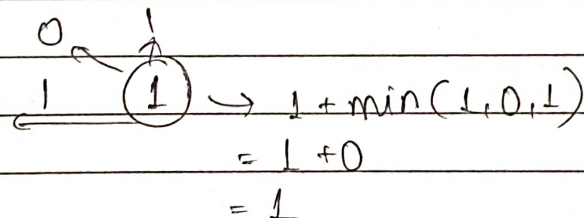 0 1
1 1 → 1 + min(1,0,1)
= 1 + 0
= 1